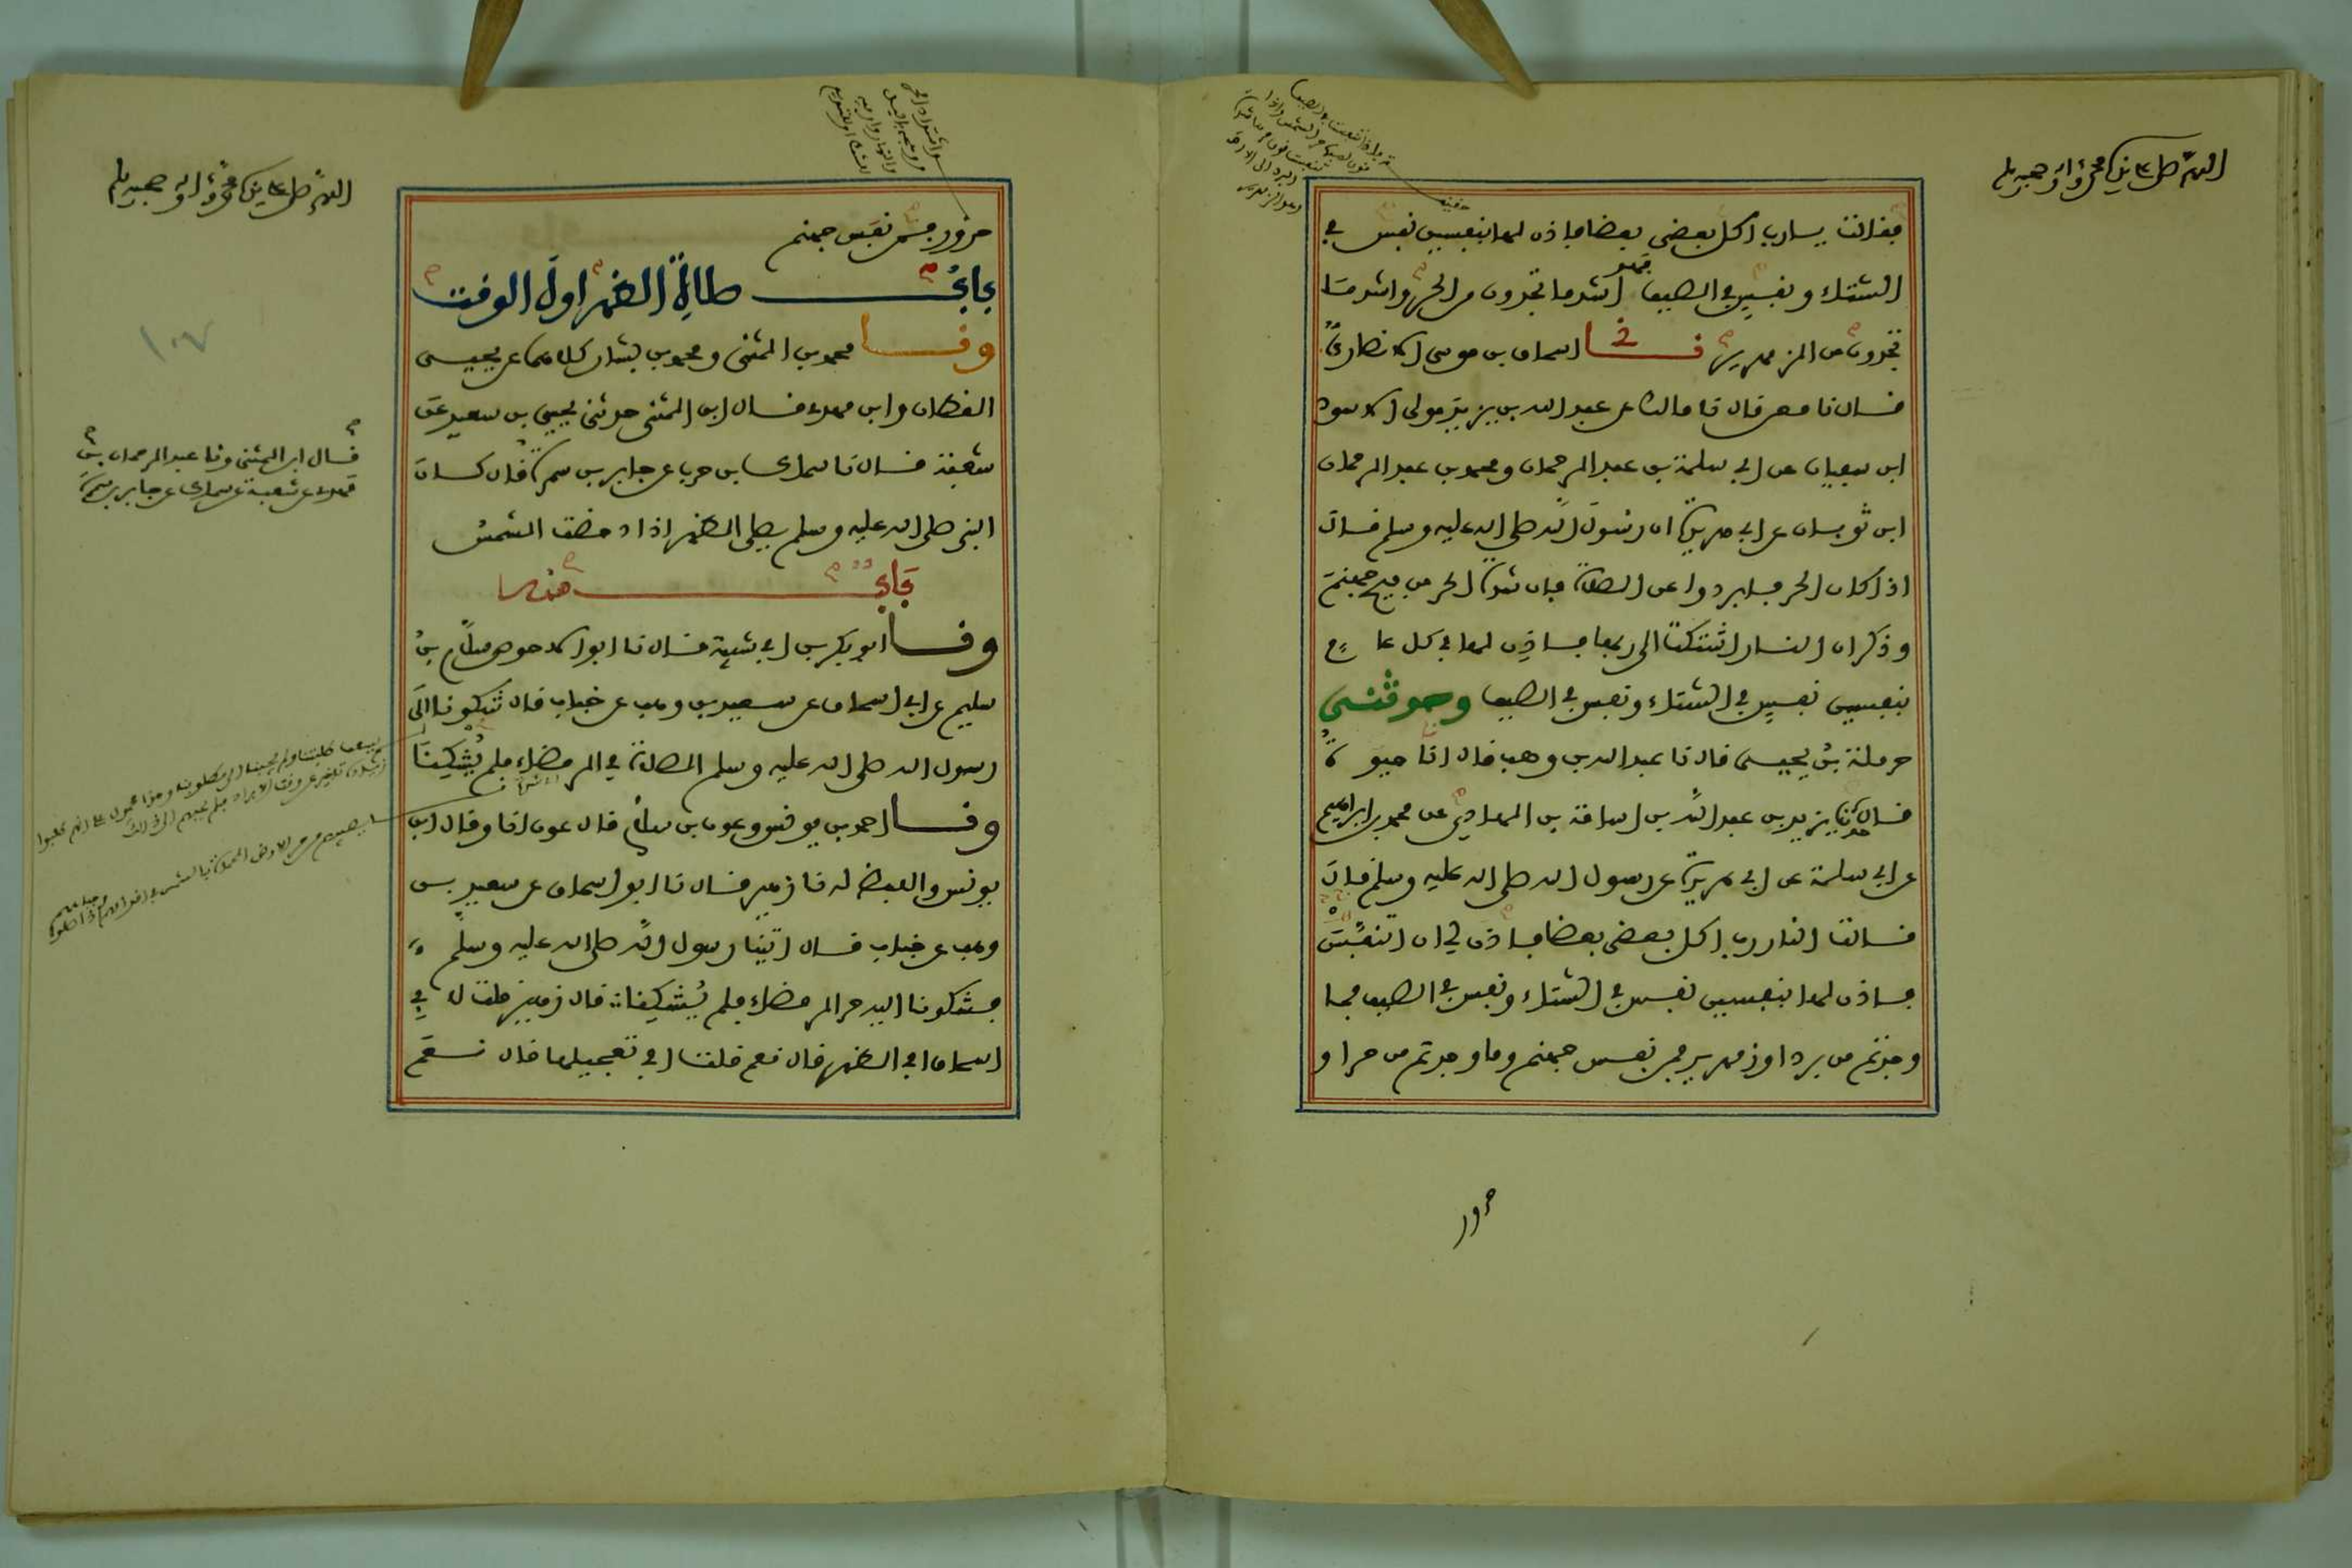 اللهم صل على سيدنا محمد وآله وصحبه وسلم
فقالت يا رب أكل بعضي بعضا فأذن لها بنفسين نفس في
الشتاء ونفس في الصيف فهو أشد ما تجدون من الحر وأشد ما
تجدون من الزمهرير نا إسحاق بن موسى الأنصاري
قال نا معن قال نا مالك عن عبد الله بن يزيد مولى الأسود
ابن سفيان عن أبي سلمة بن عبد الرحمان ومحمد بن عبد الرحمان
ابن ثوبان عن أبي هريرة أن رسول الله صلى الله عليه وسلم قال
إذا كان الحر فأبردوا عن الصلاة فإن شدة الحر من فيح جهنم
وذكر أن النار اشتكت إلى ربها فأذن لها في كل عام
بنفسين نفس في الشتاء ونفس في الصيف وحدثني
حرملة بن يحيى قال نا عبد الله بن وهب قال أنا حيوة
قال حدثنا يزيد بن عبد الله بن أسامة بن الهادي عن محمد بن إبراهيم
عن أبي سلمة عن أبي هريرة عن رسول الله صلى الله عليه وسلم قال
قالت النار رب أكل بعضي بعضا فأذن لي أن أتنفس
فأذن لها بنفسين نفس في الشتاء ونفس في الصيف فما
وجدتم من برد أو زمهرير فمن نفس جهنم وما وجدتم من حر أو
حرور
اللهم صل على سيدنا محمد وآله وصحبه وسلم
حرور فمن نفس جهنم
باب صلاة الظهر أول الوقت
ونا محمد بن المثنى ومحمد بن بشار كلاهما عن يحيى
القطان وابن مهدي قال ابن المثنى حدثني يحيى بن سعيد عن
شعبة قال نا سماك بن حرب عن جابر بن سمرة قال كان
النبي صلى الله عليه وسلم يصلي الظهر إذا دحضت الشمس
باب منه
ونا أبو بكر بن أبي شيبة قال نا أبو الأحوص سلام بن
سليم عن أبي إسحاق عن سعيد بن وهب عن خباب قال شكونا إلى
رسول الله صلى الله عليه وسلم الصلاة في الرمضاء فلم يشكنا
ونا أحمد بن يونس وعون بن سلام قال عون أنا وقال ابن
يونس واللفظ له نا زهير قال نا أبو إسحاق عن سعيد بن
وهب عن خباب قال أتينا رسول الله صلى الله عليه وسلم
فشكونا إليه حر الرمضاء فلم يشكنا قال زهير قلت لأبي
إسحاق أفي الظهر قال نعم قلت أفي تعجيلها قال نعم
قال ابن المثنى ونا عبد الرحمان بن
مهدي عن شعبة عن سماك عن جابر بن سمرة
١٠٧